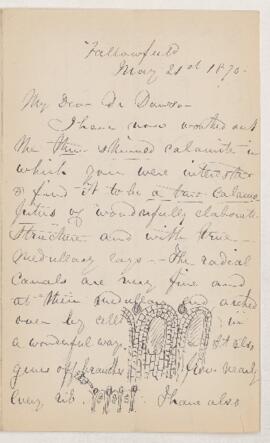 Fallowfield
May 21st 1870.
My Dear Dr Dawson
I have now worked out
the thin skinned calamite in
which you were interested
& find it to be a true Calamo
of wonderfully elaborate
structure and with true
medullary rays — The radial
Canals are very fine and
at their medullary end arched
over by cells in
a wonderful way. It also
gives off branches from nearly
every rib. I have also